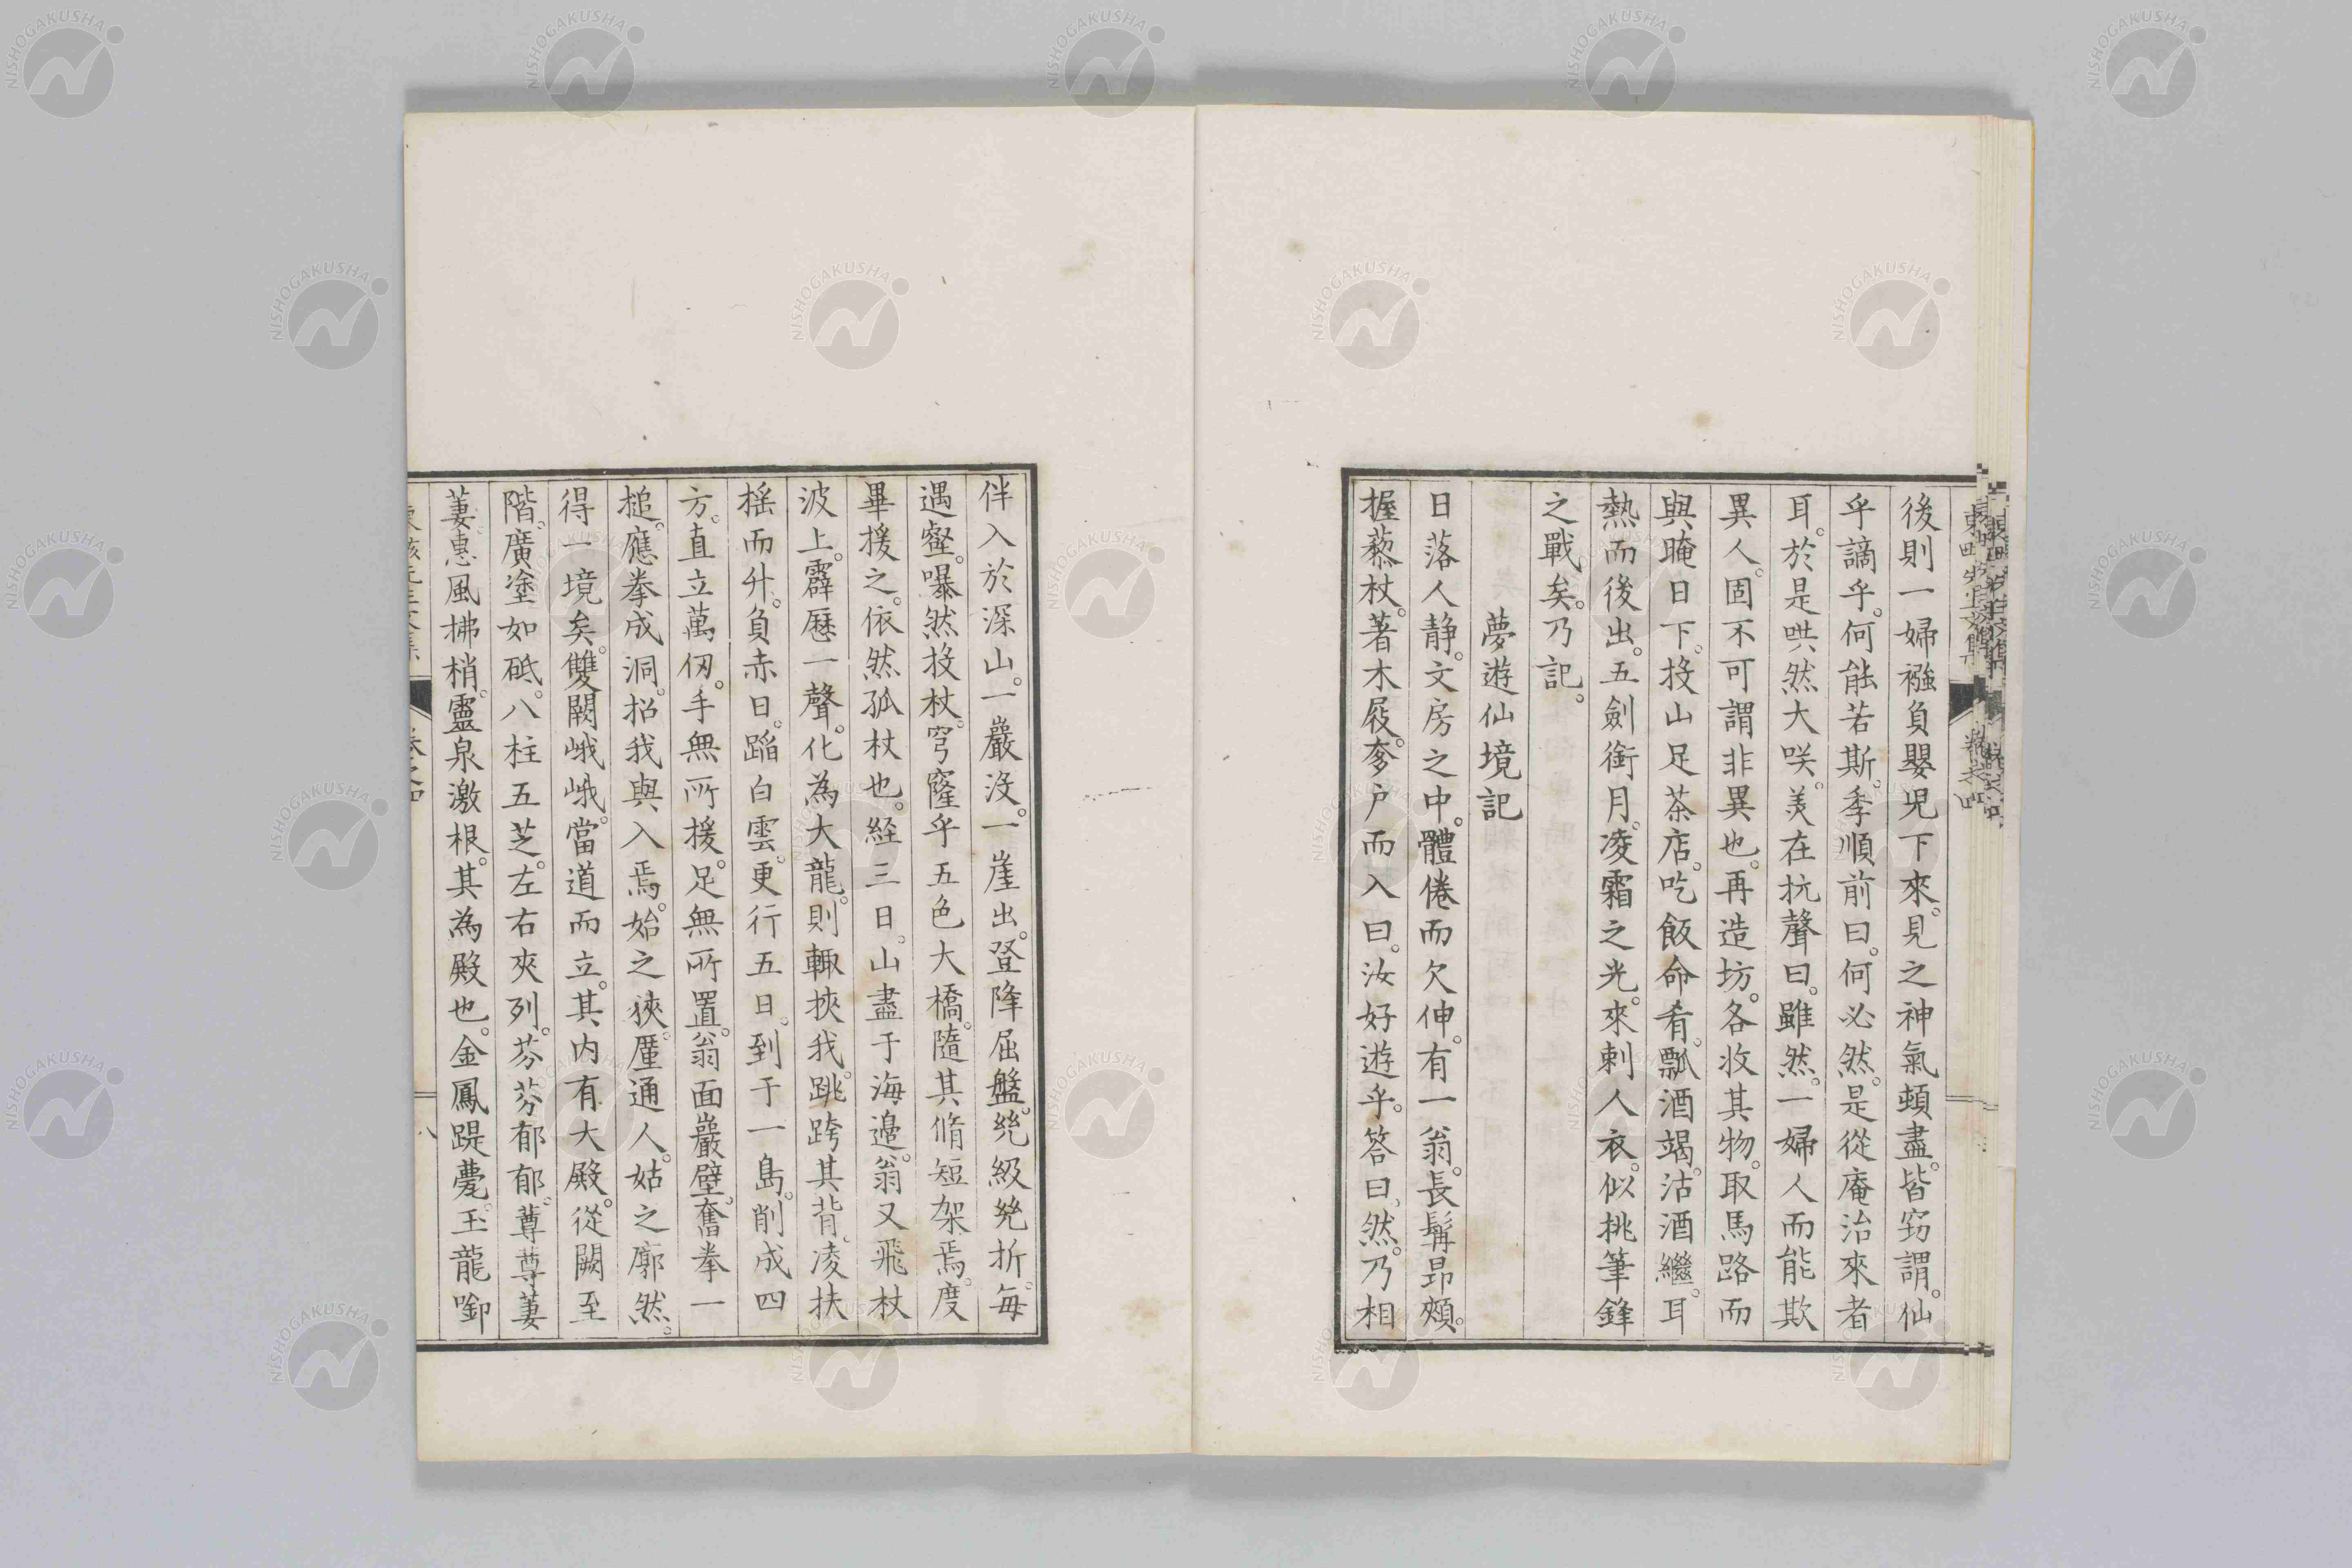 後則一婦襁負嬰児下來。見之神氣頓盡。皆窃謂。仙
乎謫乎。何能若斯。季順前曰。何必然。是從庵治來者
耳。於是哄然大咲。美在抗聲曰。雖然。一婦人而能欺
異人。固不可謂非異也。再造坊。各收其物。取馬路而
與晻日下。投山足茶店。吃飯命肴。瓢酒竭。沽酒繼。耳
熱而後出。五劍銜月。凌霜之光。來刺人衣。似挑筆鋒
之戰矣。乃記。
夢遊仙境記
日落人静。文房之中。體倦而欠伸。有一翁。長髯昻頰。
握藜杖。著木屐。奓户而入曰。汝好遊乎。答曰。然。乃相
伴入於深山。一巖沒。一崖出。登降屈盤。㡬級㡬折。每
遇壑。嚗然投杖。穹窿乎五色大橋。隨其脩短架焉。度
畢援之。依然孤杖也。経三日。山盡于海邉。翁又飛杖
波上。霹歷一聲。化為大龍。則輙挾我。跳跨其背。凌扶
揺而升。負赤日。蹈白雲。更行五日。到于一島。削成四
方。直立萬仭。手無所援。足無所置。翁面巖壁。奮拳一
搥。應拳成洞。招我與入焉。始之狹。厪通人。姑之廓然。
得一境矣。雙闕峨峨。當道而立。其内有大殿。從闕至
階。廣塗如砥。八柱五芝。左右夾列。芬芬郁郁。蓴蓴萋
萋。恵風拂梢。靈泉激根。其為殿也。金鳳踶甍。玉龍啣
卷之四
八
NISHOGAKUSHA